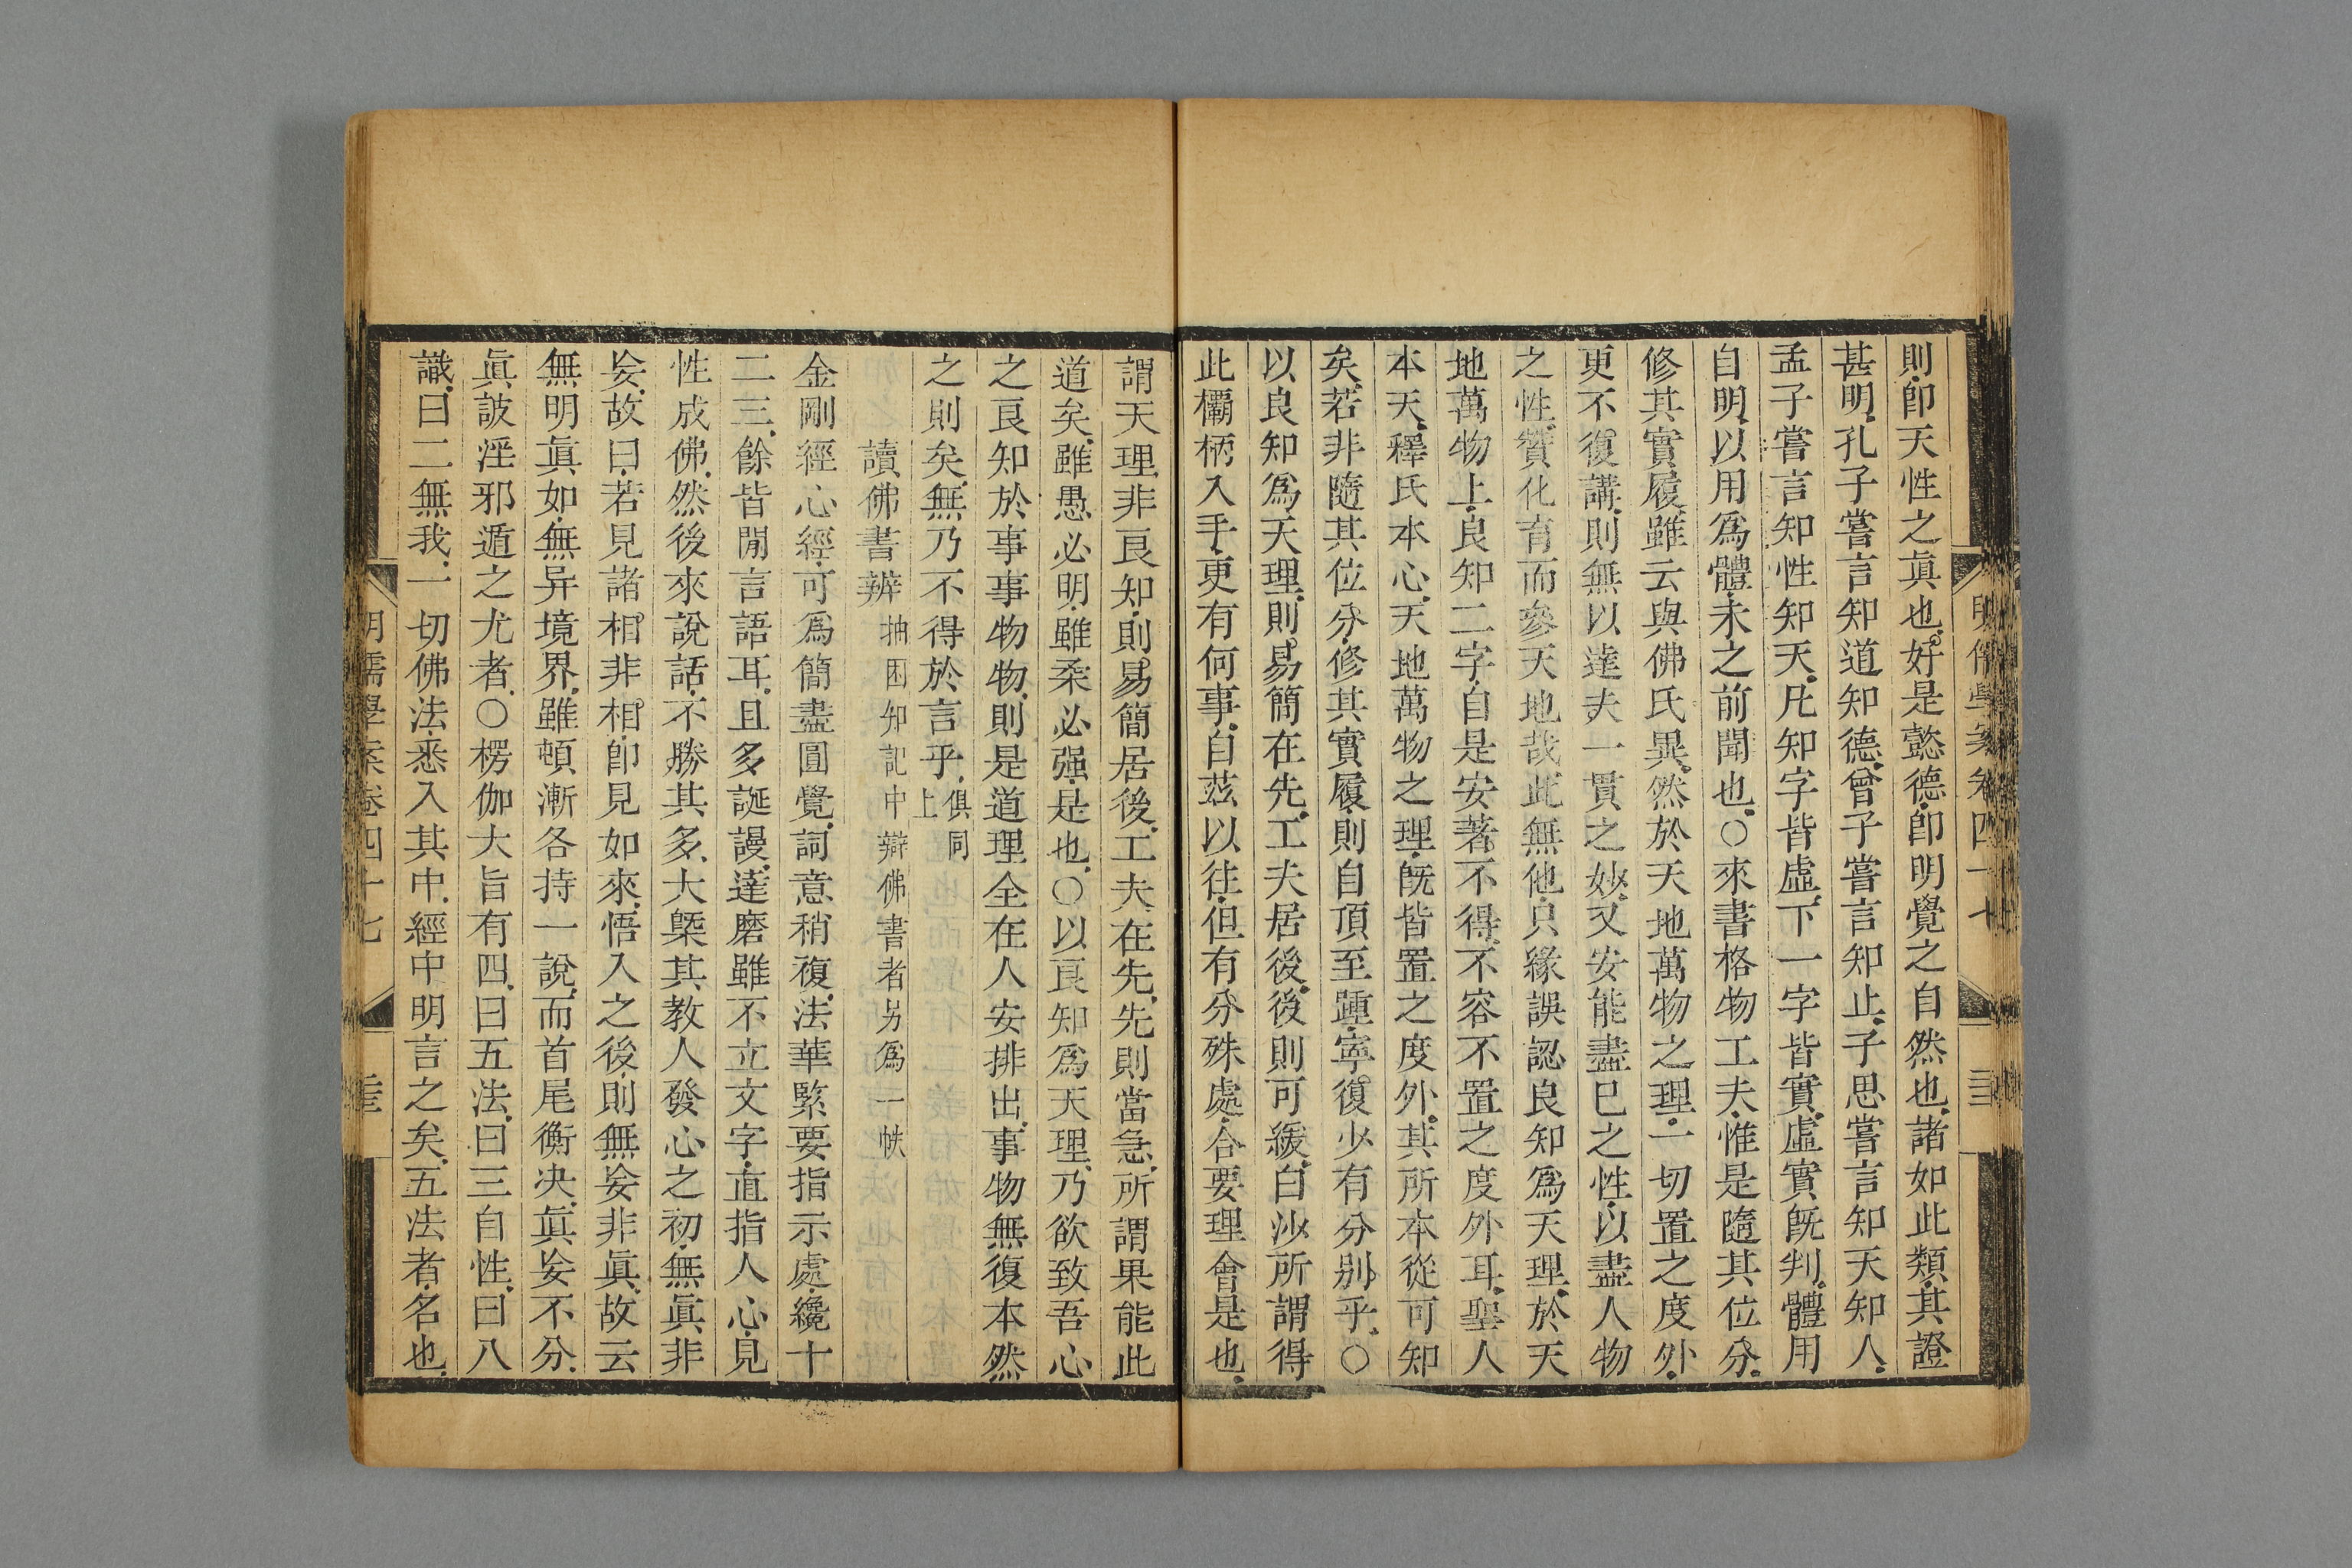 則即天性之眞也好是懿德即明覺之自然也諸如此類其證
甚明孔子嘗言知道知德曾子嘗言知止子思嘗言知天知人
孟子嘗言知性知天凡知字皆虛下一字皆實虛實旣判體用
自明以用爲體未之前聞也○來書格物工夫惟是隨其位分
修其實履雖云與佛氏異然於天地萬物之理一切置之度外
更不復講則無以達夫一貫之妙又安能盡巳之性以盡人物
之性贊化育而參天地哉此無他只緣誤認良知爲天理於天
地萬物上良知二字自是安著不得不容不置之度外耳聖人
本天釋氏本心天地萬物之理旣皆置之度外其所本從可知
矣若非隨其位分修其實履則自頂至踵寧復少有分别乎○
以良知爲天理則易簡在先工夫居後後則可緩白沙所謂得
此欛柄入手更有何事自茲以往但有分殊處合要理會是也
謂天理非良知則易簡居後工夫在先先則當急所謂果能此
道矣雖愚必明雖柔必强是也○以良知爲天理乃欲致吾心
之良知於事事物物則是道理全在人安排出事物無復本然
之則矣無乃不得於言乎俱同上
讀佛書辨抽困知記中辯佛書者另爲一帙
金剛經心經可爲簡盡圓覺詞意稍複法華緊要指示處纔十
二三餘皆閒言語耳且多誕謾達磨雖不立文字直指人心見
性成佛然後來說話不勝其多大槩其教人發心之初無眞非
妄故曰若見諸相非相即見如來悟入之後則無妄非眞故云
無明眞如無异境界雖頓漸各持一說而首尾衡决眞妄不分
眞詖淫邪遁之尤者○楞伽大旨有四曰五法曰三自性曰八
識曰二無我一切佛法悉入其中經中明言之矣五法者名也
明儒學案卷四十七